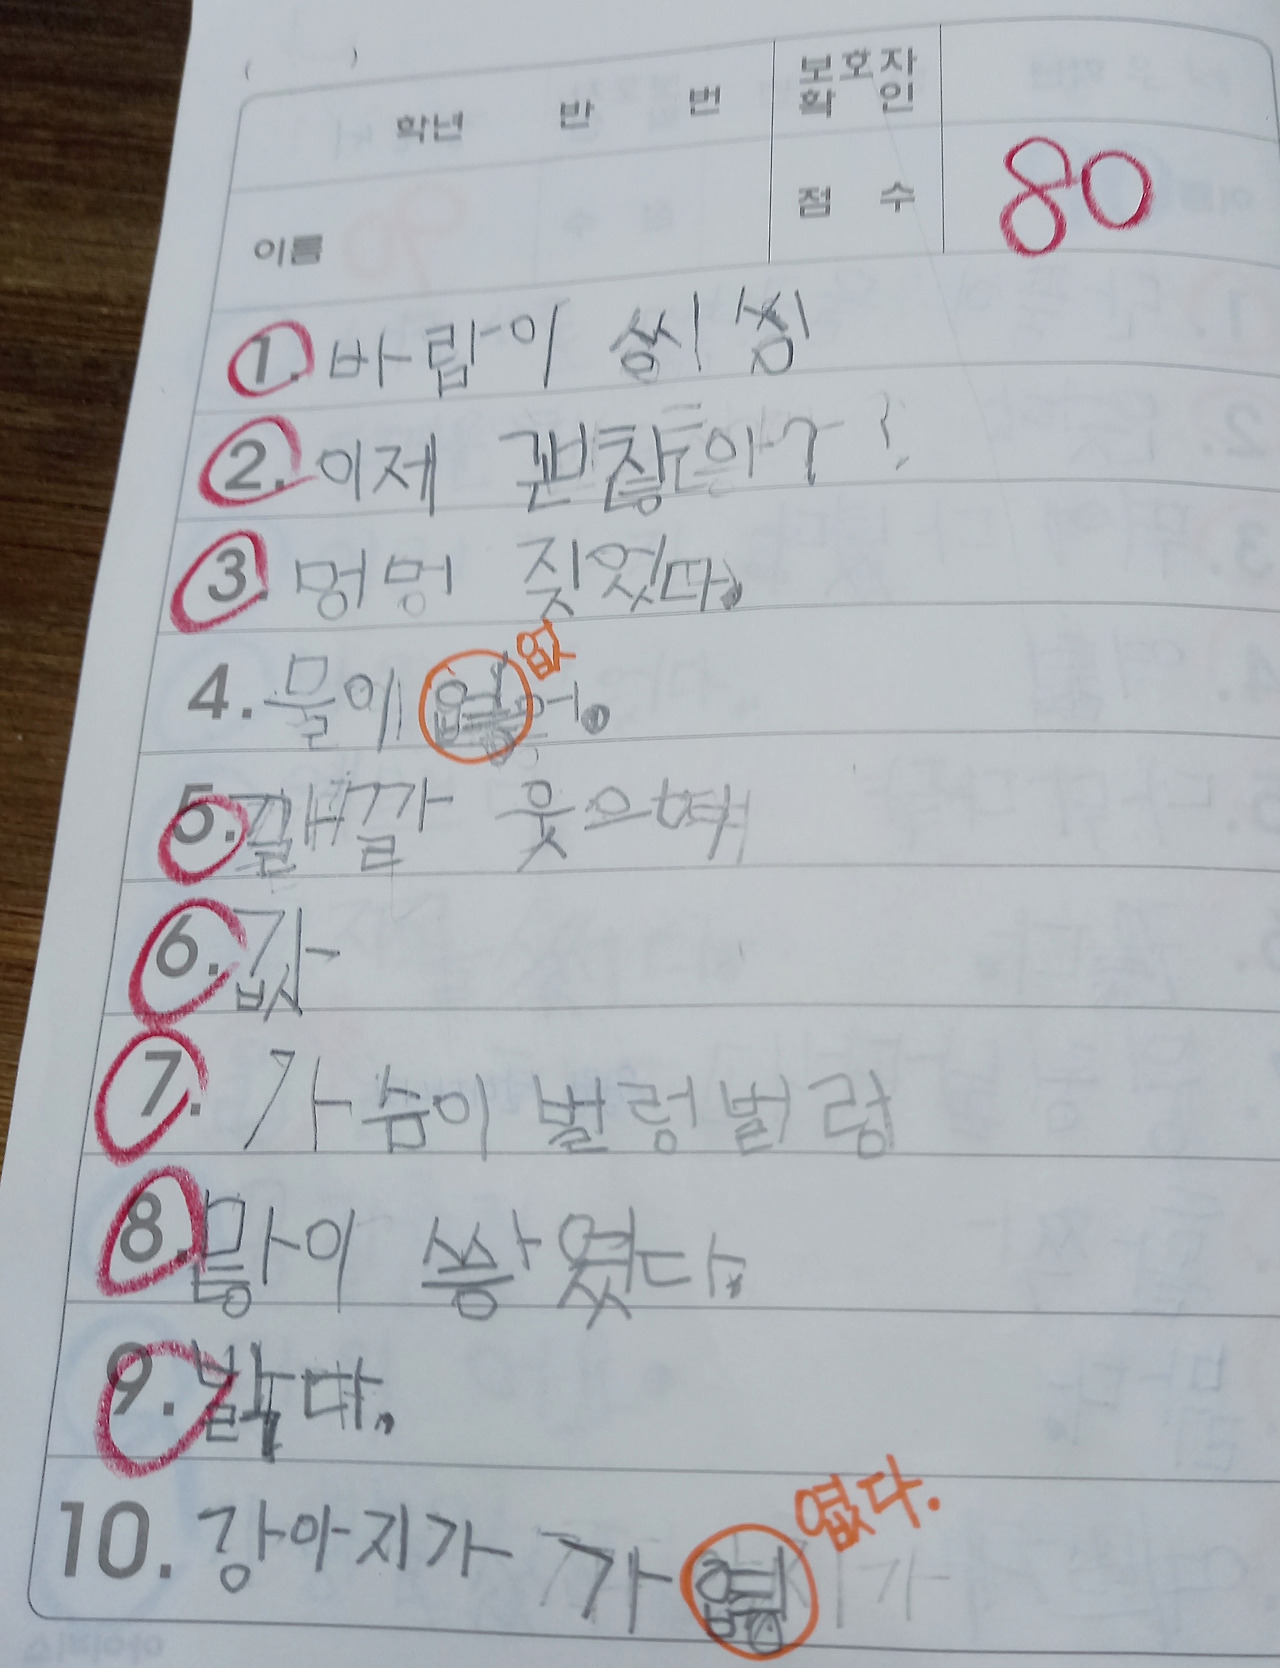 ( )
학년 반 번 보호자 확인
이름 점수 80
1. 바람이 씽씽
2. 이제 괜찮아?
3. 멍멍 짖었다.
4. 물이 어. 없
5. 깔깔 웃으며
6. 값
7. 가슴이 벌렁벌렁
8. 맘이 쌓였다.
9. 밝다.
10. 강아지가 가 엾다.